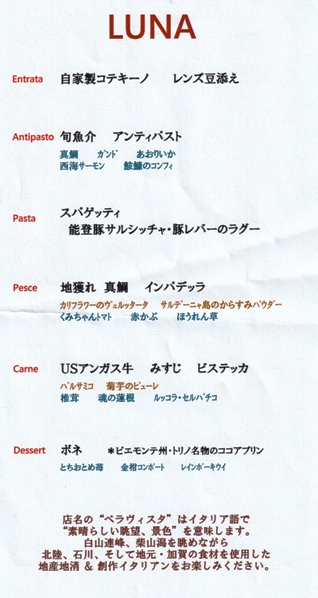 LUNA
Entrata 自家製コテキーノ レンズ豆添え
Antipasto 旬魚介 アンティパスト
真鯛 ガンド あおりいか
西海サーモン 鮟鱇のコンフィ
スパゲッティ
Pasta 能登豚サルシッチャ・豚レバーのラグー
Pesce 地獲れ 真鯛 インパデッラ
カリフラワーのヴェルッタータ サルデーニャ島のからすみパウダー
くみちゃんトマト 赤かぶ ほうれん草
Carne USアンガス牛 みすじ ビステッカ
バルサミコ 菊芋のピューレ
椎茸 魂の蓮根 ルッコラ・セルバチコ
Dessert ボネ *ピエモンテ州・トリノ名物のココアプリン
とちおとめ苺 金柑コンポート レインボーキウイ
店名の“ベラヴィスタ”はイタリア語で
“素晴らしい眺望、景色”を意味します。
白山連峰、柴山潟を眺めながら
北陸、石川、そして地元・加賀の食材を使用した
地産地消 & 創作イタリアンをお楽しみください。